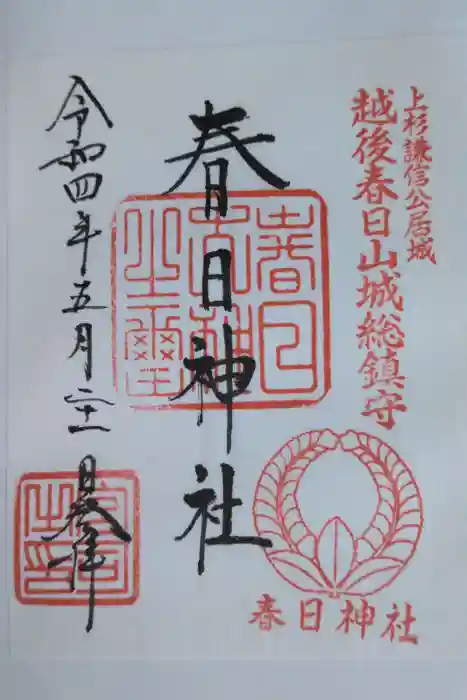 上杉謙信公居城
越後春日山城総鎮守
春日神社
春日神社
令和四年五月二十一日奉拝